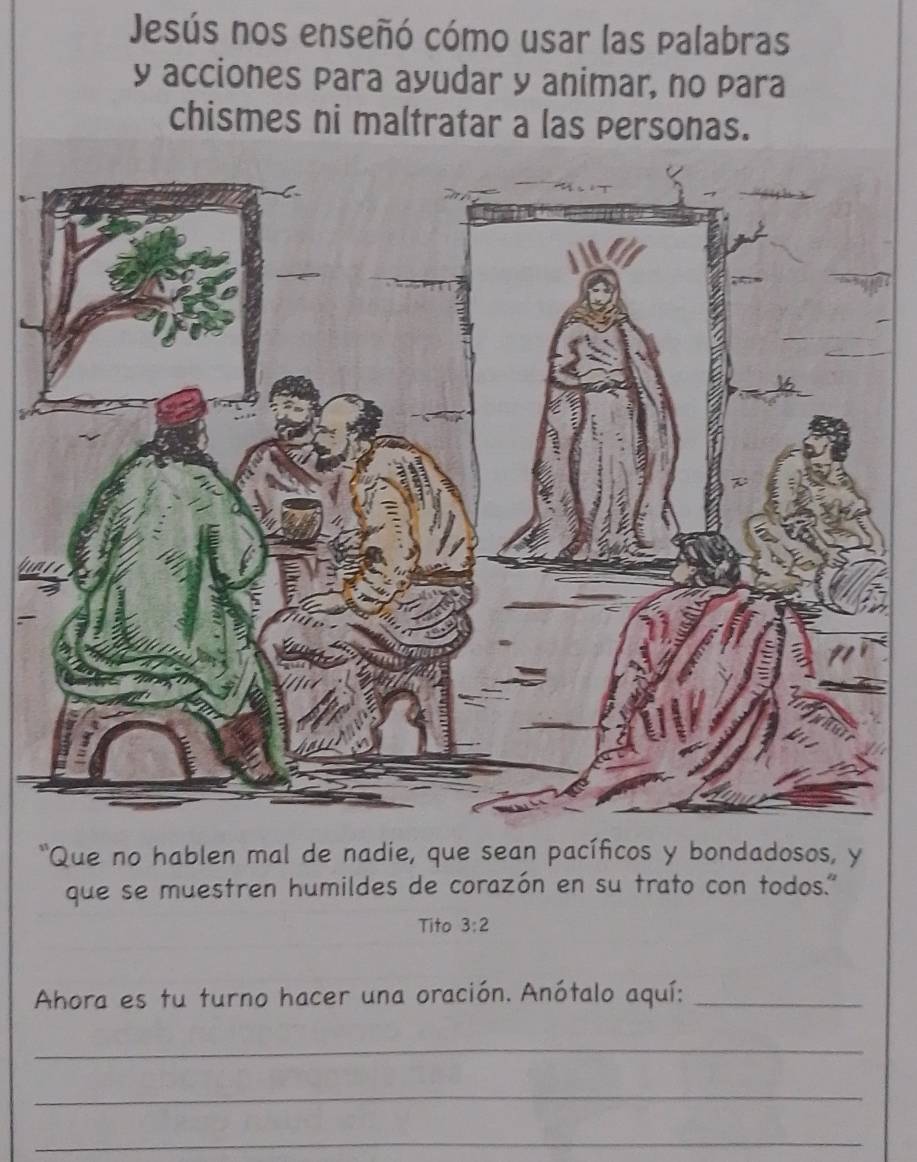 Jesús nos enseñó cómo usar las palabras
y acciones para ayudar y animar, no para
chismes ni maltratar a las personas.
"Que no hablen mal de nadie, que sean pacíficos y bondadosos, y
que se muestren humildes de corazón en su trato con todos."
Tito 3:2
Ahora es tu turno hacer una oración. Anótalo aquí: